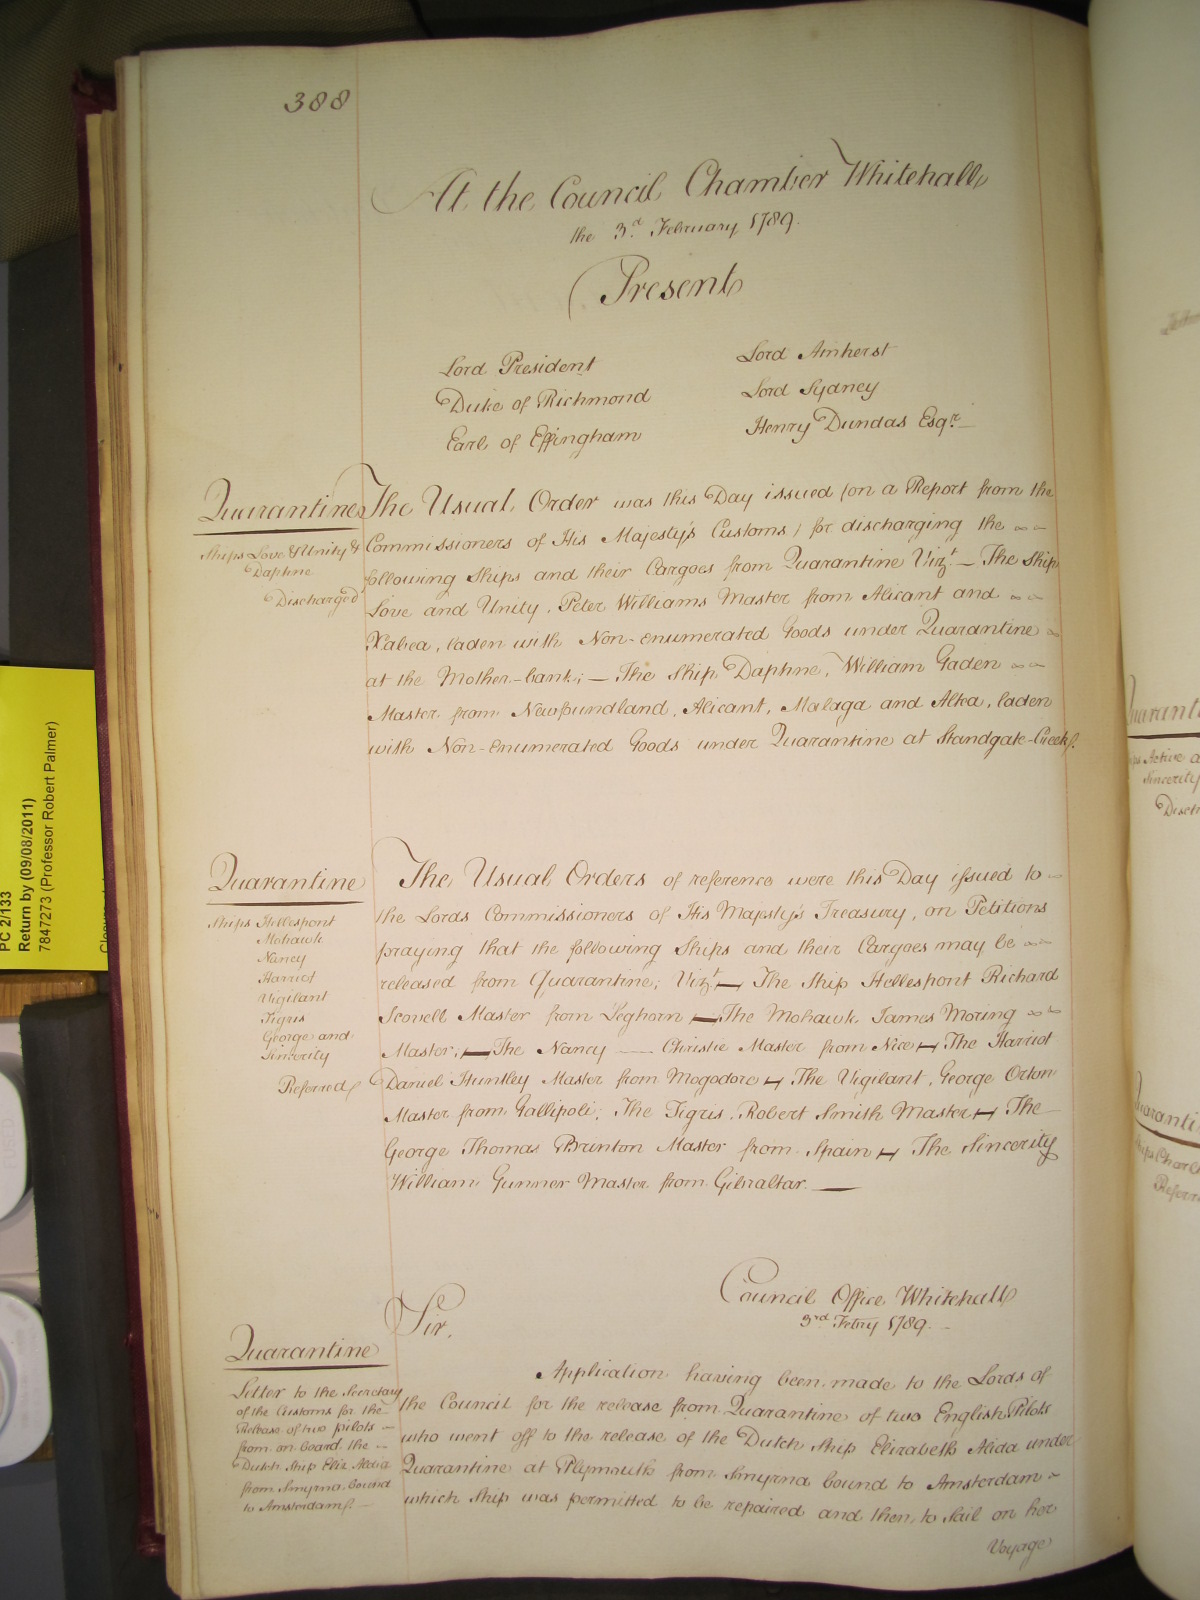 388
At the Council Chamber Whitehall
the 3d. February 1789.
Present
Lord President
Duke of Richmond
Earl of Effingham
Lord Amherst
Lord Sydney
Henry Dundas Esqr.
Quarantine
Ships Love & Unity &
Daphne
Discharged
The Usual Order was this Day issued (on a Report from the
Commissioners of His Majesty's Customs) for discharging the
following Ships and their Cargoes from Quarantine Vizt. — The Ship
Love and Unity, Peter Williams Master from Alicant and
Xabea, laden with Non-enumerated Goods under Quarantine
at the Mother-bank; — The Ship Daphne, William Gaden
Master from Newfoundland, Alicant, Malaga and Altea, laden
with Non-enumerated Goods under Quarantine at Standgate-Creek.
Quarantine
Ships Hellespont
Mohawk
Nancy
Harriot
Vigilant
Tigris
George and
Sincerity
Referred
The Usual Orders of reference were this Day issued to
the Lords Commissioners of His Majesty's Treasury, on Petitions
praying that the following Ships and their Cargoes may be
released from Quarantine; Vizt. — The Ship Hellespont Richard
Scovell Master from Leghorn — The Mohawk James Moring
Master, — The Nancy — Christie Master from Nice — The Harriot
Daniel Huntley Master from Mogodore — The Vigilant, George Orton
Master from Gallipoli; The Tigris, Robert Smith Master — The
George Thomas Brunton Master from Spain — The Sincerity
William Gunner Master from Gibraltar. —
Council Office Whitehall
3rd Febry 1789.
Sir.
Quarantine
Letter to the Secretary
of the Customs for the
Release of two pilots
from on board the
Dutch Ship Eliz Aldia
from Smyrna bound
to Amsterdam
Application having been made to the Lords of
the Council for the release from Quarantine of two English Pilots
who went off to the release of the Dutch Ship Elizabeth Alida under
Quarantine at Plymouth from Smyrna bound to Amsterdam
which Ship was permitted to be repaired and then to Sail on her
Voyage
PC 2/133
Return by (09/08/2011)
7847273 (Professor Robert Palmer)